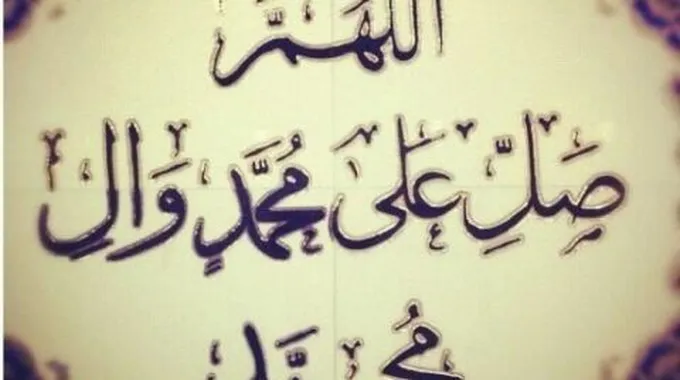 اللهم
صَلِّ عَلىٰ مُحَمَّدٍ وَالِ
مُحَمَّد